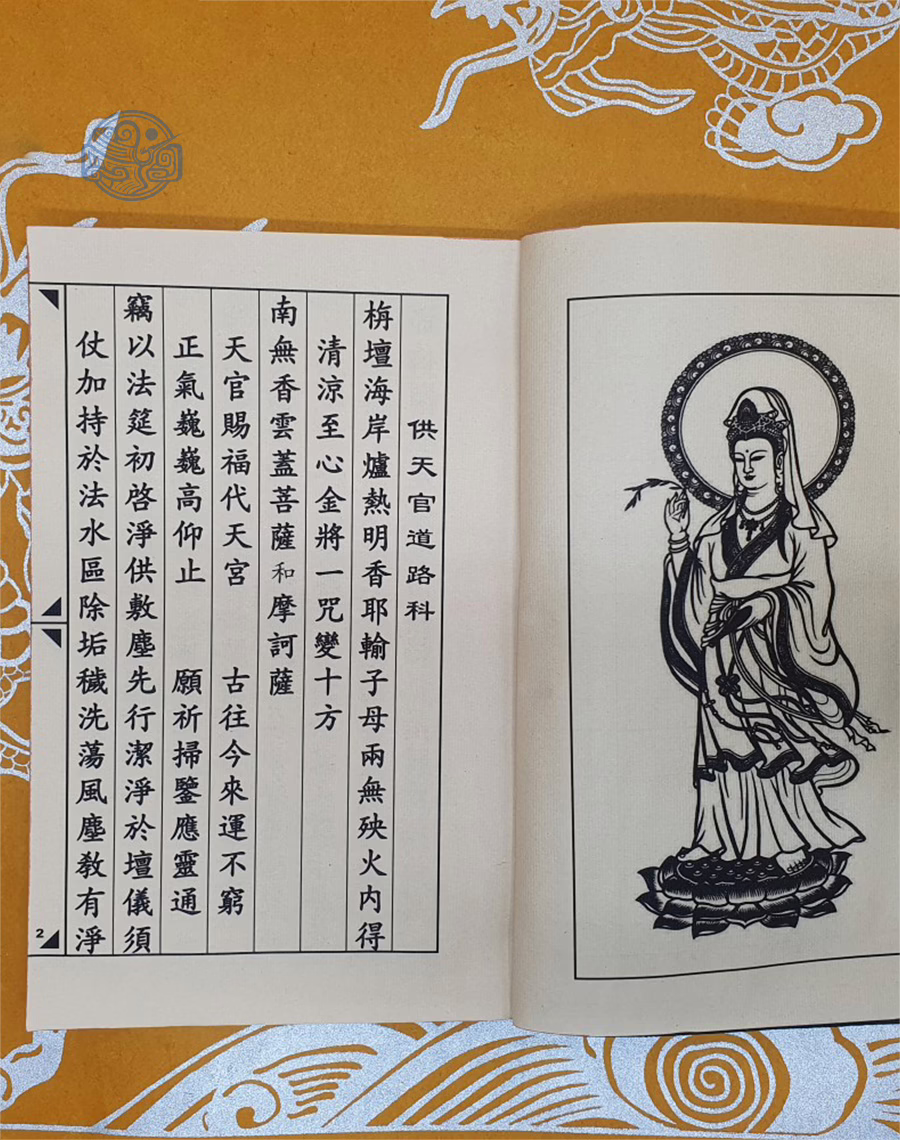 供天官道路科
栴壇海岸爐熱明香耶輸子母兩無殃火内得
清涼至心金將一咒變十方
南無香雲蓋菩薩和摩訶薩
天官賜福代天宮　古往今來運不窮
正氣巍巍高仰止　願祈掃鑒應靈通
竊以法筵初啓淨供敷塵先行潔淨於壇儀須
仗加持於法水區除垢穢洗蕩風塵教有淨
2